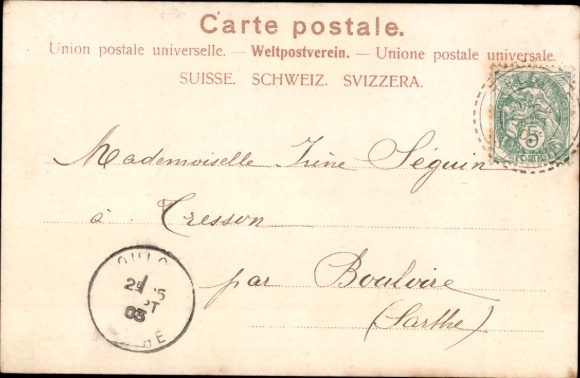 Carte postale.
Union postale universelle. — Weltpostverein. — Unione postale universale.
SUISSE. SCHWEIZ. SVIZZERA.
5
POSTES
Mademoiselle Irène Séguin
à Tresson
par Bouloire
(Sarthe)
25
PT
03
HE